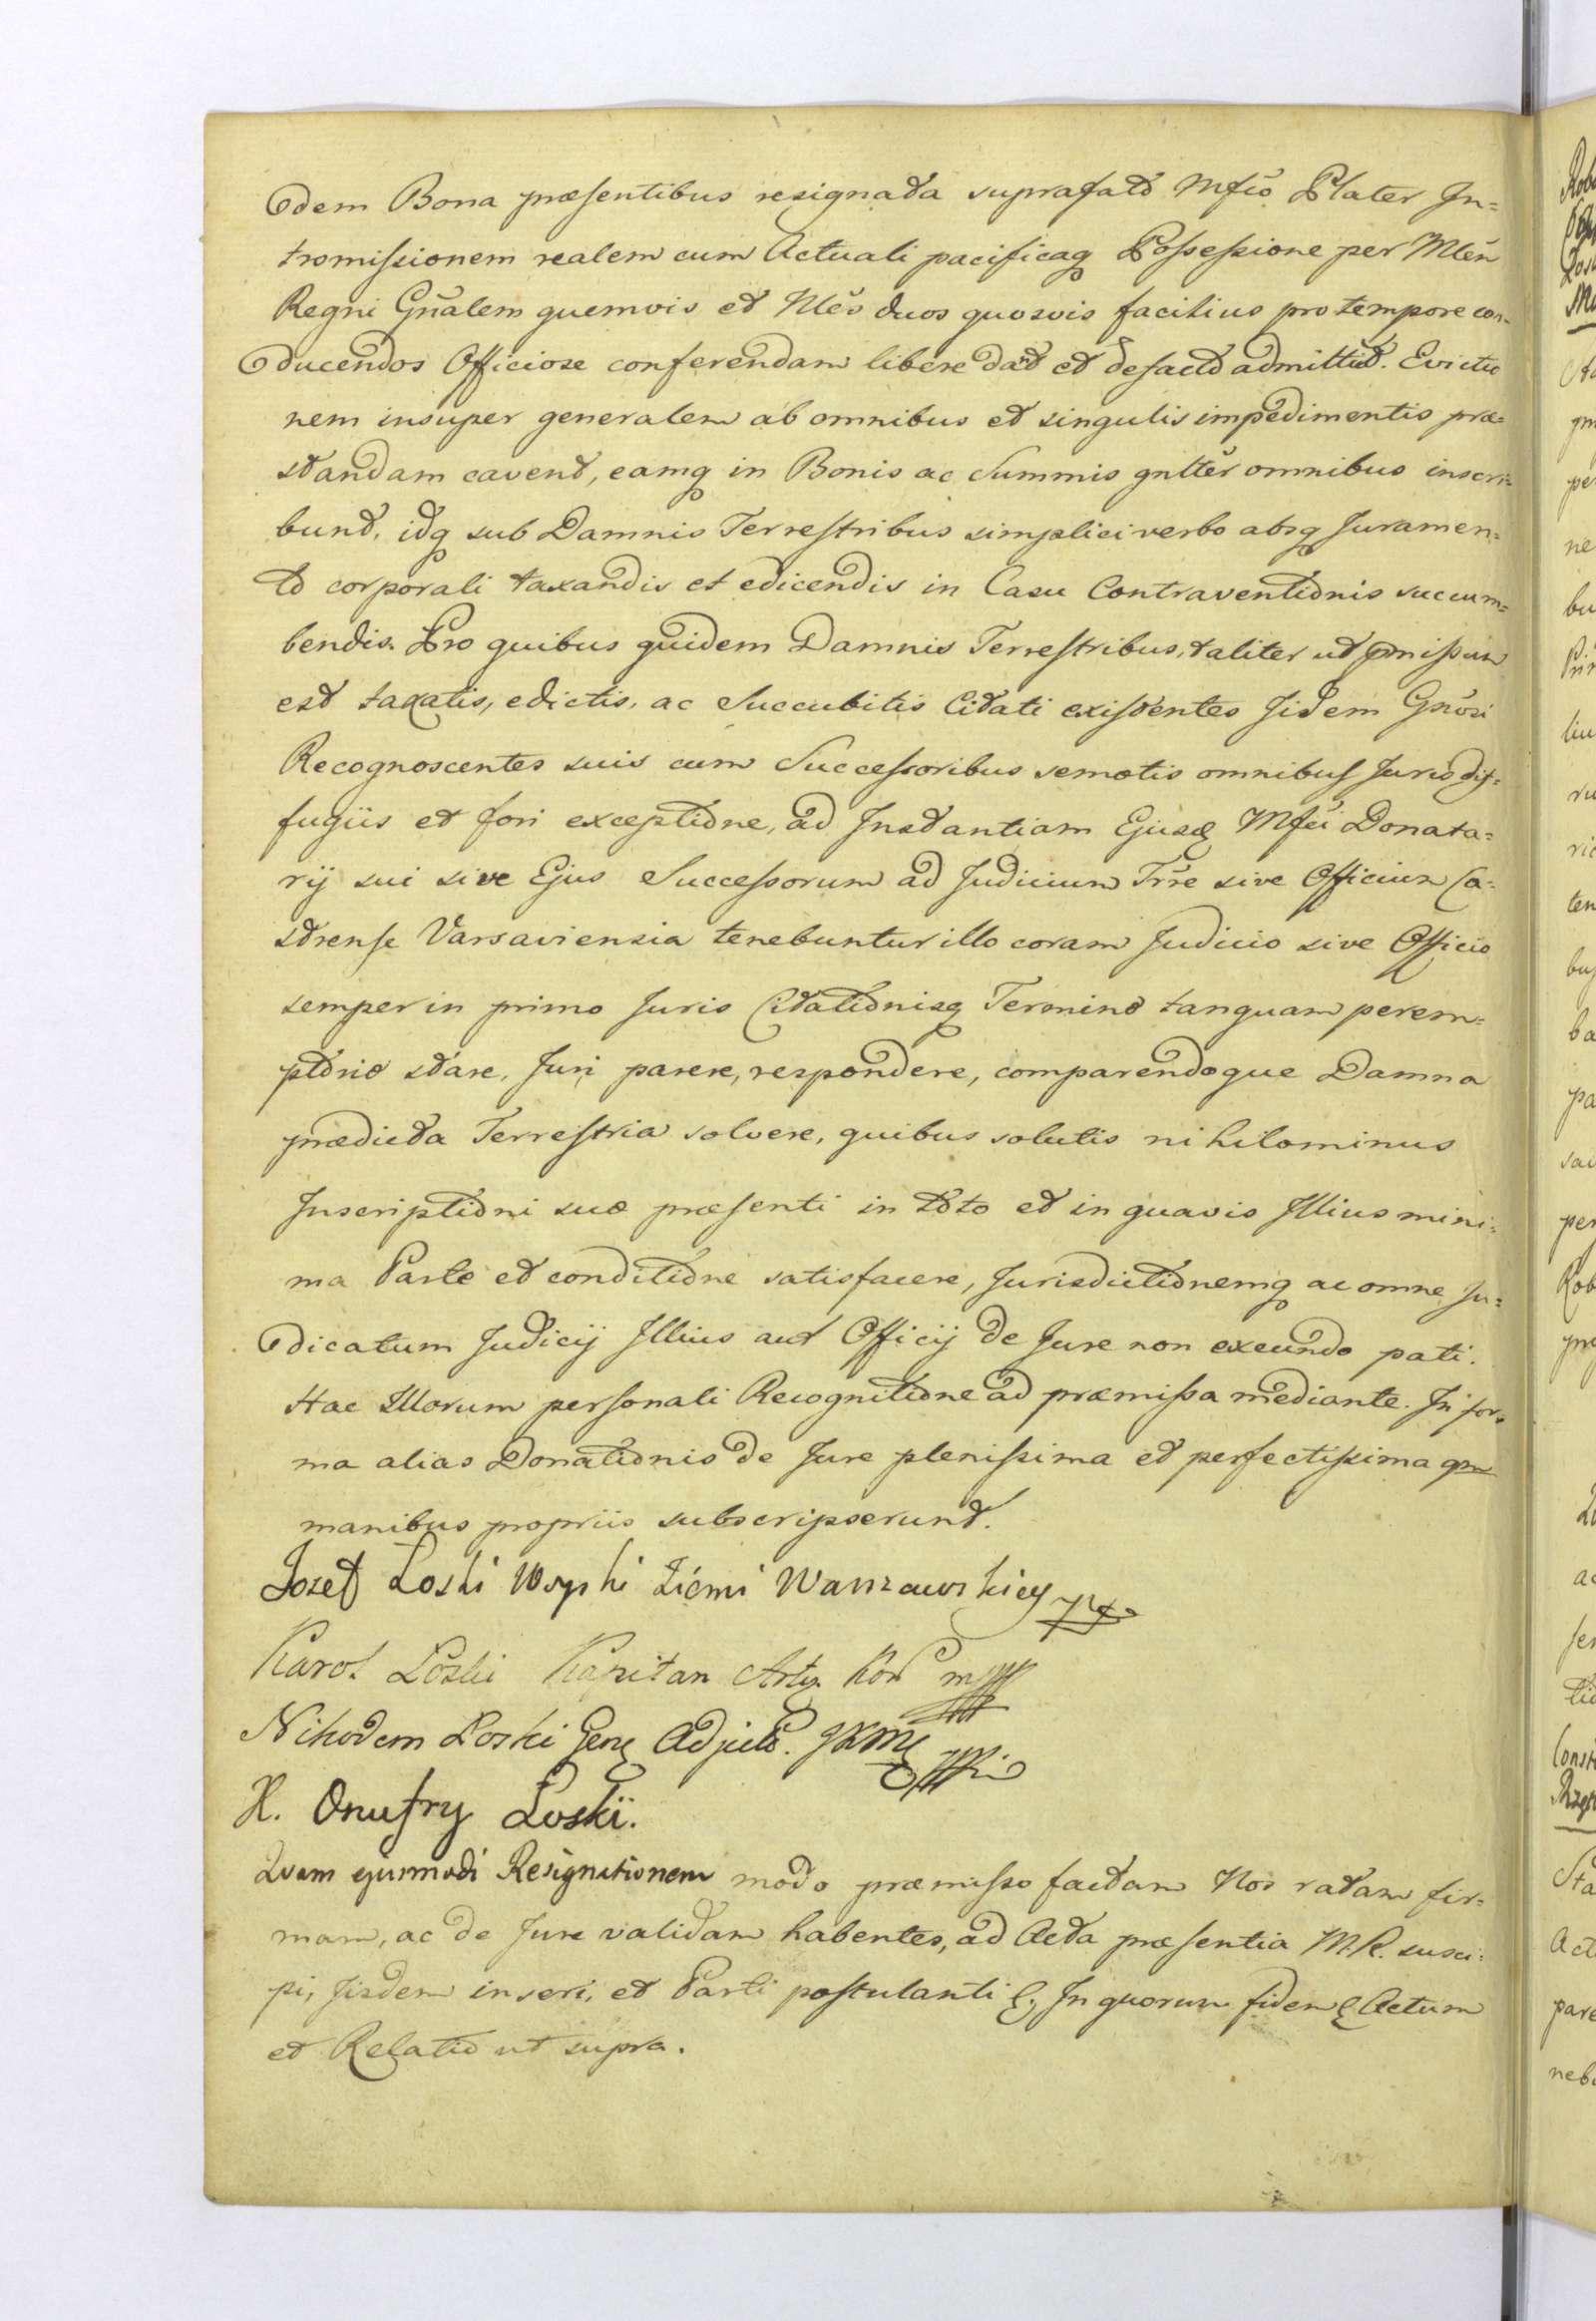 dem Bona præsentibus resignata suprafato Mfco Plater In=
tromissionem realem cum Actuali pacificaq Possessione per Mlem
Regni Gnalem quemvis et Nles duos quosvis facilius pro tempore con=
ducendos Officiose conferendam libere dant et defacto admittut. Evictio
nem insuper generalem ab omnibus et singulis impedimentis præ=
standam cavent, eamq in Bonis ac Summis gnlter omnibus inscri=
bunt, idq sub Damnis Terrestribus simplici verbo absq Juramen=
to corporali taxandis et edicendis in Casu Contraventionis succum=
bendis. Pro quibus quidem Damnis Terrestribus, taliter ut pmissum
est taxatis, edictis, ac Succubitis Citati existentes Jidem Gnosi
Recognoscentes suis cum Successoribus semotis omnibus Juris dif=
fugiis et fori exceptione, ad Instantiam Ejusd Mfci Donata=
rij sui sive Ejus Successorum ad Judicium Trre sive Officium Ca=
strense Varsaviensia tenebuntur illo coram Judicio sive Officio
semper in primo Juris Citationisq Termino tanquam perem=
ptorio stare, Juri parere, respondere, comparendoque Damna
prædicta Terrestria solvere, quibus solutis nihilominus
Inscriptioni suæ præsenti in toto et in quavis Illius mini=
ma Parte et conditione satisfacere, Jurisdictionemq ac omne Ju=
dicatum Judicij Illius aut Officij de Jure non exeundo pati.
Hac Illorum personali Recognitione ad præmissa mediante. In for=
ma alias Donationis de Jure plenissima et perfectissima qm
manibus propriis subscripserunt.
Jozef Loski Wojski Ziemi Warszawskiey
Karol Łoski Kapitan Arty. Kor mp
Nikodem Loski Gene Adjut. JKMc
X. Onufry Łoskï.
Quam ejusmodi Resignationem modo præmisso factam Nos ratam fir=
mam, ac de Jure validam habentes, ad Acta præsentia M.R. susci=
pi, Jisdem inseri, et Parti postulanti &. In quorum fidem & Actum
et Relatio ut supra.